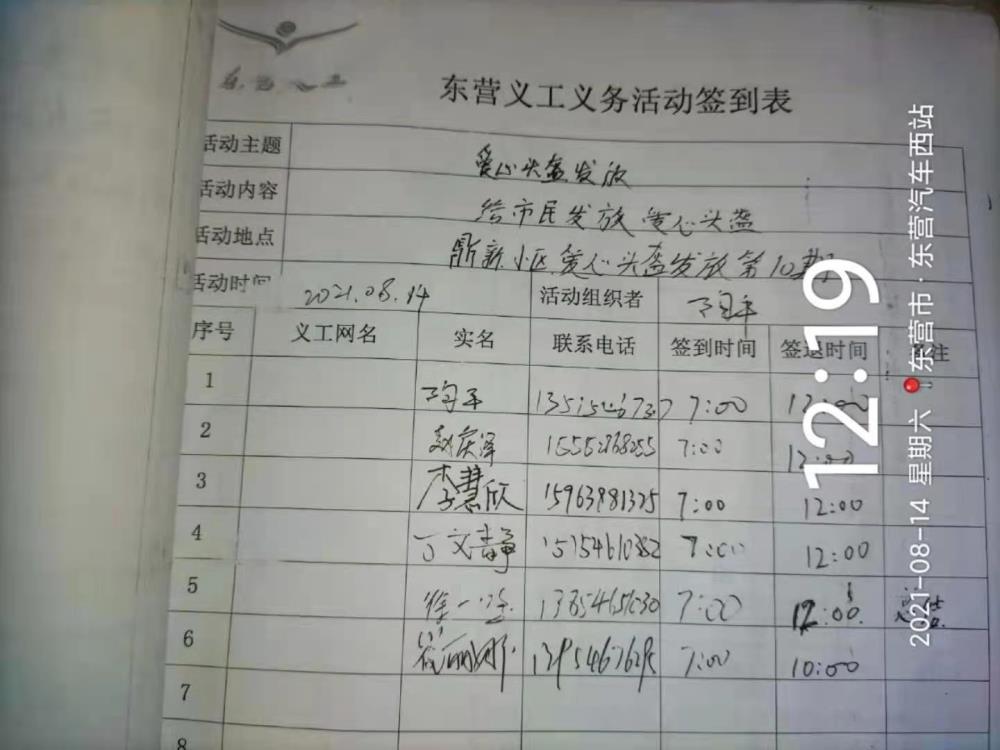 东营义工义务活动签到表
活动主题 爱心头盔发放
活动内容 给市民发放爱心头盔
活动地点 鼎新小区爱心头盔发放第10期
活动时间 2021.08.14 活动组织者
序号 义工网名 实名 联系电话 签到时间 签退时间 备注
1 7:00 12:00
2 赵庆泽 15552768255 7:00 12:00
3 李慧欣 15963981325 7:00 12:00
4 丁文静 15154610382 7:00 12:00
5 7:00 12:00 总结
6 崔丽娜 7:00 10:00
7
8
12:19
2021-08-14 星期六 东营市·东营汽车西站